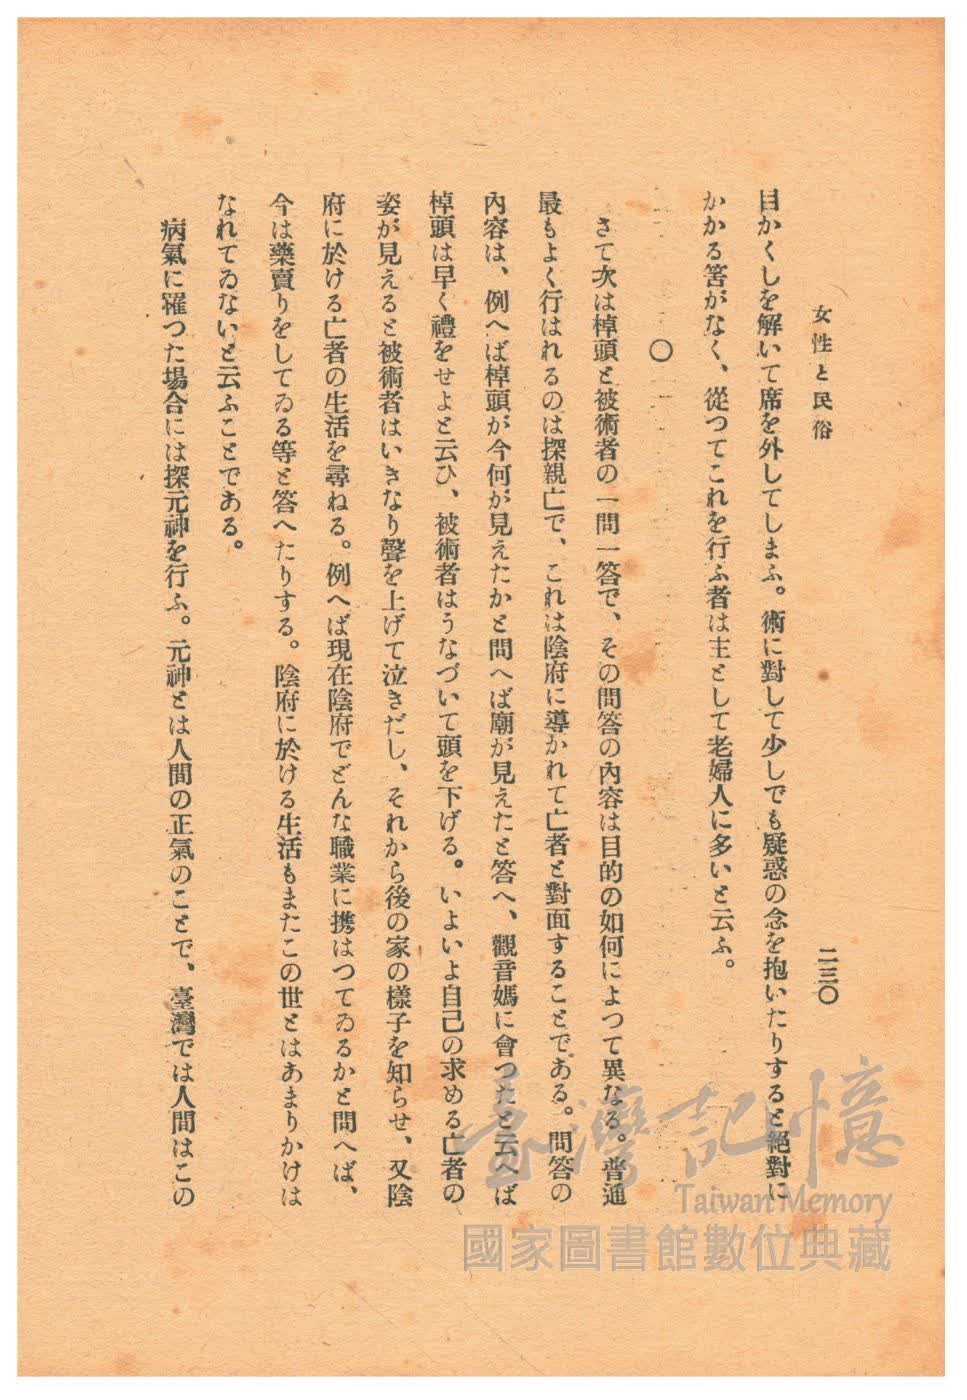 女性と民俗
二三〇
目かくしを解いて席を外してしまふ。術に對して少しでも疑惑の念を抱いたりすると絕對に
かかる筈がなく、從つてこれを行ふ者は主として老婦人に多いと云ふ。
〇
さて次は棹頭と被術者の一問一答で、その問答の內容は目的の如何によつて異なる。普通
最もよく行はれるのは探親亡で、これは陰府に導かれて亡者と對面することである。問答の
內容は、例へば棹頭が今何が見えたかと問へば廟が見えたと答へ、觀音媽に會つたと云へば
棹頭は早く禮をせよと云ひ、被術者はうなづいて頭を下げる。いよいよ自己の求める亡者の
姿が見えると被術者はいきなり聲を上げて泣きだし、それから後の家の樣子を知らせ、又陰
府に於ける亡者の生活を尋ねる。例へば現在陰府でどんな職業に携はつてゐるかと問へば、
今は藥賣りをしてゐる等と答へたりする。陰府に於ける生活もまたこの世とはあまりかけは
なれてゐないと云ふことである。
病氣に罹つた場合には探元神を行ふ。元神とは人間の正氣のことで、臺灣では人間はこの
臺灣記憶
Taiwan Memory
國家圖書館數位典藏